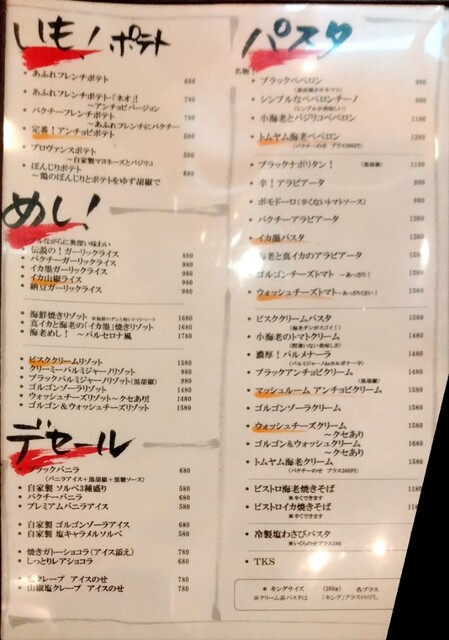 いも！ポテト
あふれフレンチポテト 680
あふれフレンチポテト・「ネオ」！ 780
～アンチョビバージョン
パクチーフレンチポテト 780
～あふれフレンチにパクチー
定番！アンチョビポテト 580
プロヴァンスポテト 580
～自家製マヨネーズとバジリコ
ぼんじりポテト 680
～鶏のぼんじりとポテトをゆず胡椒で
めし！
ながらに奥深い味わい
伝説の！ガーリックライス 880
パクチーガーリックライス 980
イカ墨ガーリックライス 980
イカ山椒ライス 980
納豆ガーリックライス 980
海鮮焼きリゾット 1680
真イカと海老の「イカ墨」焼きリゾット 1680
海老めし！ ～バルセロナ風 1780
ビスククリームリゾット 1580
クリーミーパルミジャーノリゾット 980
ブラックパルミジャーノリゾット(黒胡椒) 980
ゴルゴンゾーラリゾット 1480
ウォッシュチーズリゾット～クセあり！ 1480
ゴルゴン＆ウォッシュチーズリゾット 1580
デセール
ブラックバニラ 680
(バニラアイス＋黒胡椒＋黒糖ソース)
自家製 ソルベ3種盛り 580
パクチーバニラ 680
プレミアムバニラアイス 580
自家製 ゴルゴンゾーラアイス 680
自家製 塩キャラメルソルベ 580
焼きガトーショコラ(アイス添え) 780
しっとりレアショコラ 680
塩クレープ アイスのせ 780
山椒塩クレープ アイスのせ 780
パスタ
名物
ブラックペペロン 980
シンプルなペペロンチーノ 980
小海老とバジリコペペロン 1180
トムヤム海老ペペロン 1280
ブラックナポリタン！ (黒胡椒) 1180
辛！アラビアータ 980
ポモドーロ(辛くないトマトソース) 980
パクチーアラビアータ 1280
イカ墨パスタ 1280
海老と真イカのアラビアータ 1580
ゴルゴンチーズトマト ～あっさり！ 1280
ウォッシュチーズトマト ～あっさりくさい！ 1380
ビスククリームパスタ 1580
(海老ダシがスゴイ！)
小海老のトマトクリーム 1380
(間違いない美味しさ)
濃厚！パルメナーラ 1380
ブラックアンチョビクリーム 1380
(黒胡椒)
マッシュルーム アンチョビクリーム 1380
ゴルゴンゾーラクリーム 1380
ウォッシュチーズクリーム 1480
～クセあり
ゴルゴン＆ウォッシュクリーム 1680
～クセあり
トムヤム海老クリーム 1580
ビストロ海老焼きそば 1180
※辛くできます
ビストロイカ焼きそば 1180
※辛くできます
冷製塩わさびパスタ
TKS
キングサイズ (260g) 各プラス
※クリーム系パスタは 「キング」プラス